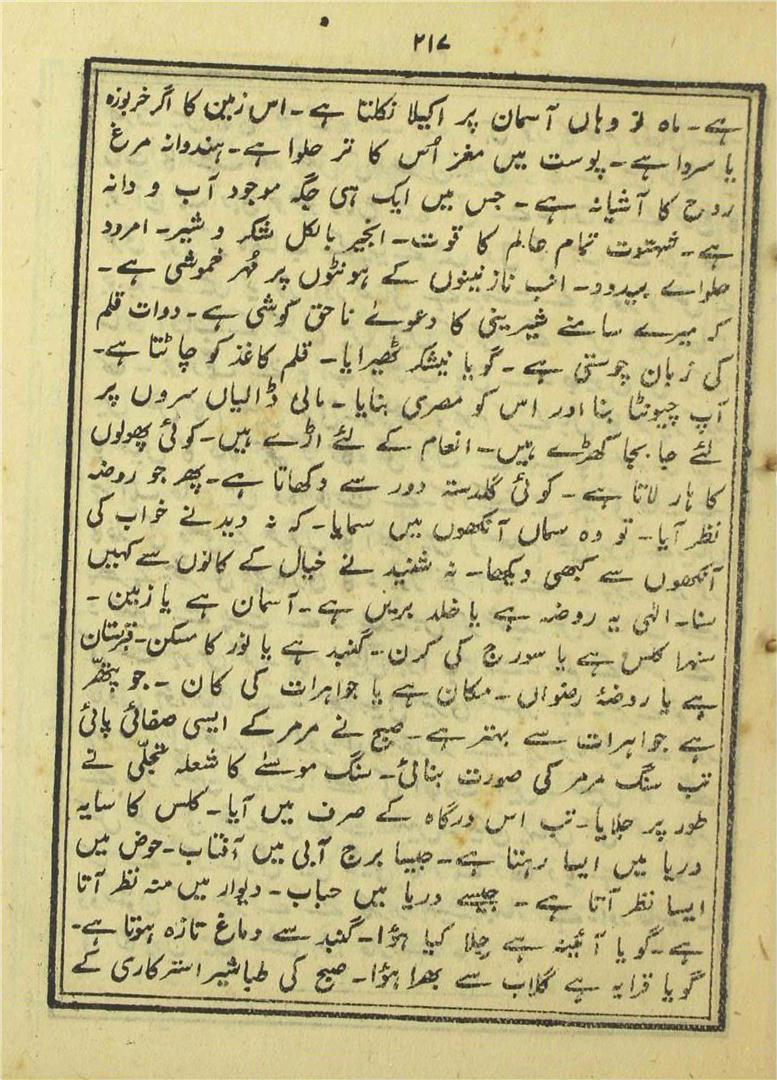 ۲۱۷
ہے۔ ماہ نو وہاں آسمان پر اکیلا نکلتا ہے۔ اس زمین کا اگر خربوزہ
یا سردا ہے۔ پوست میں مغز اُس کا تر حلوا ہے۔ ہندوانہ مرغ
روح کا آشیانہ ہے۔ جس میں ایک ہی جگہ موجود آب و دانہ
ہے۔ شہتوت تمام عالم کا قوت۔ انجیر بالکل شکر و شیر۔ امرود
حلواے بیدود۔ انب نازنینوں کے ہونٹوں پر مُہر خموشی ہے۔
کہ میرے سامنے شیرینی کا دعوےٰ ناحق کوشی ہے۔ دوات قلم
کی زبان چوستی ہے۔ گویا نیشکر ٹھیرایا۔ قلم کاغذ کو چاٹتا ہے۔
آپ چیونٹا بنا اور اس کو مصری بنایا۔ مالی ڈالیاں سروں پر
لئے جا بجا کھڑے ہیں۔ انعام کے لئے اڑے ہیں۔ کوئی پھولوں
کا ہار لاتا ہے۔ کوئی گلدستہ دور سے دکھاتا ہے۔ پھر جو روضہ
نظر آیا۔ تو وہ سماں آنکھوں میں سمایا۔ کہ نہ دید نے خواب کی
آنکھوں سے کبھی دیکھا۔ نہ شنید نے خیال کے کانوں سے کہیں
سنا۔ الٰہی یہ روضہ ہے یا خلد بریں ہے۔ آسمان ہے یا زمین۔
سنہرا کلس ہے یا سورج کی کرن۔ گنبد ہے یا نور کا مسکن۔ قبرستان
ہے یا روضۂ رضواں۔ مکان ہے یا جواہرات کی کان۔ جو پتھّر
ہے جواہرات سے بہتر ہے۔ صبح نے مرمر کے ایسی صفائی پائی
تب سنگ مرمر کی صورت بنائی۔ سنگ موسےٰ کا شعلہ تجلّی نے
طور پر جلایا۔ تب اس درگاہ کے صرف میں آیا۔ کلس کا سایہ
دریا میں ایسا رہتا ہے۔ جیسا برج آبی میں آفتاب۔ حوض میں
ایسا نظر آتا ہے۔ جیسے دریا میں حباب۔ دیوار میں منہ نظر آتا
ہے۔ گویا آئینہ ہے جِلا کیا ہؤا۔ گنبد سے دماغ تازہ ہوتا ہے۔
گویا قرابہ ہے گلاب سے بھرا ہؤا۔ صبح کی طباشیر استرکاری کے